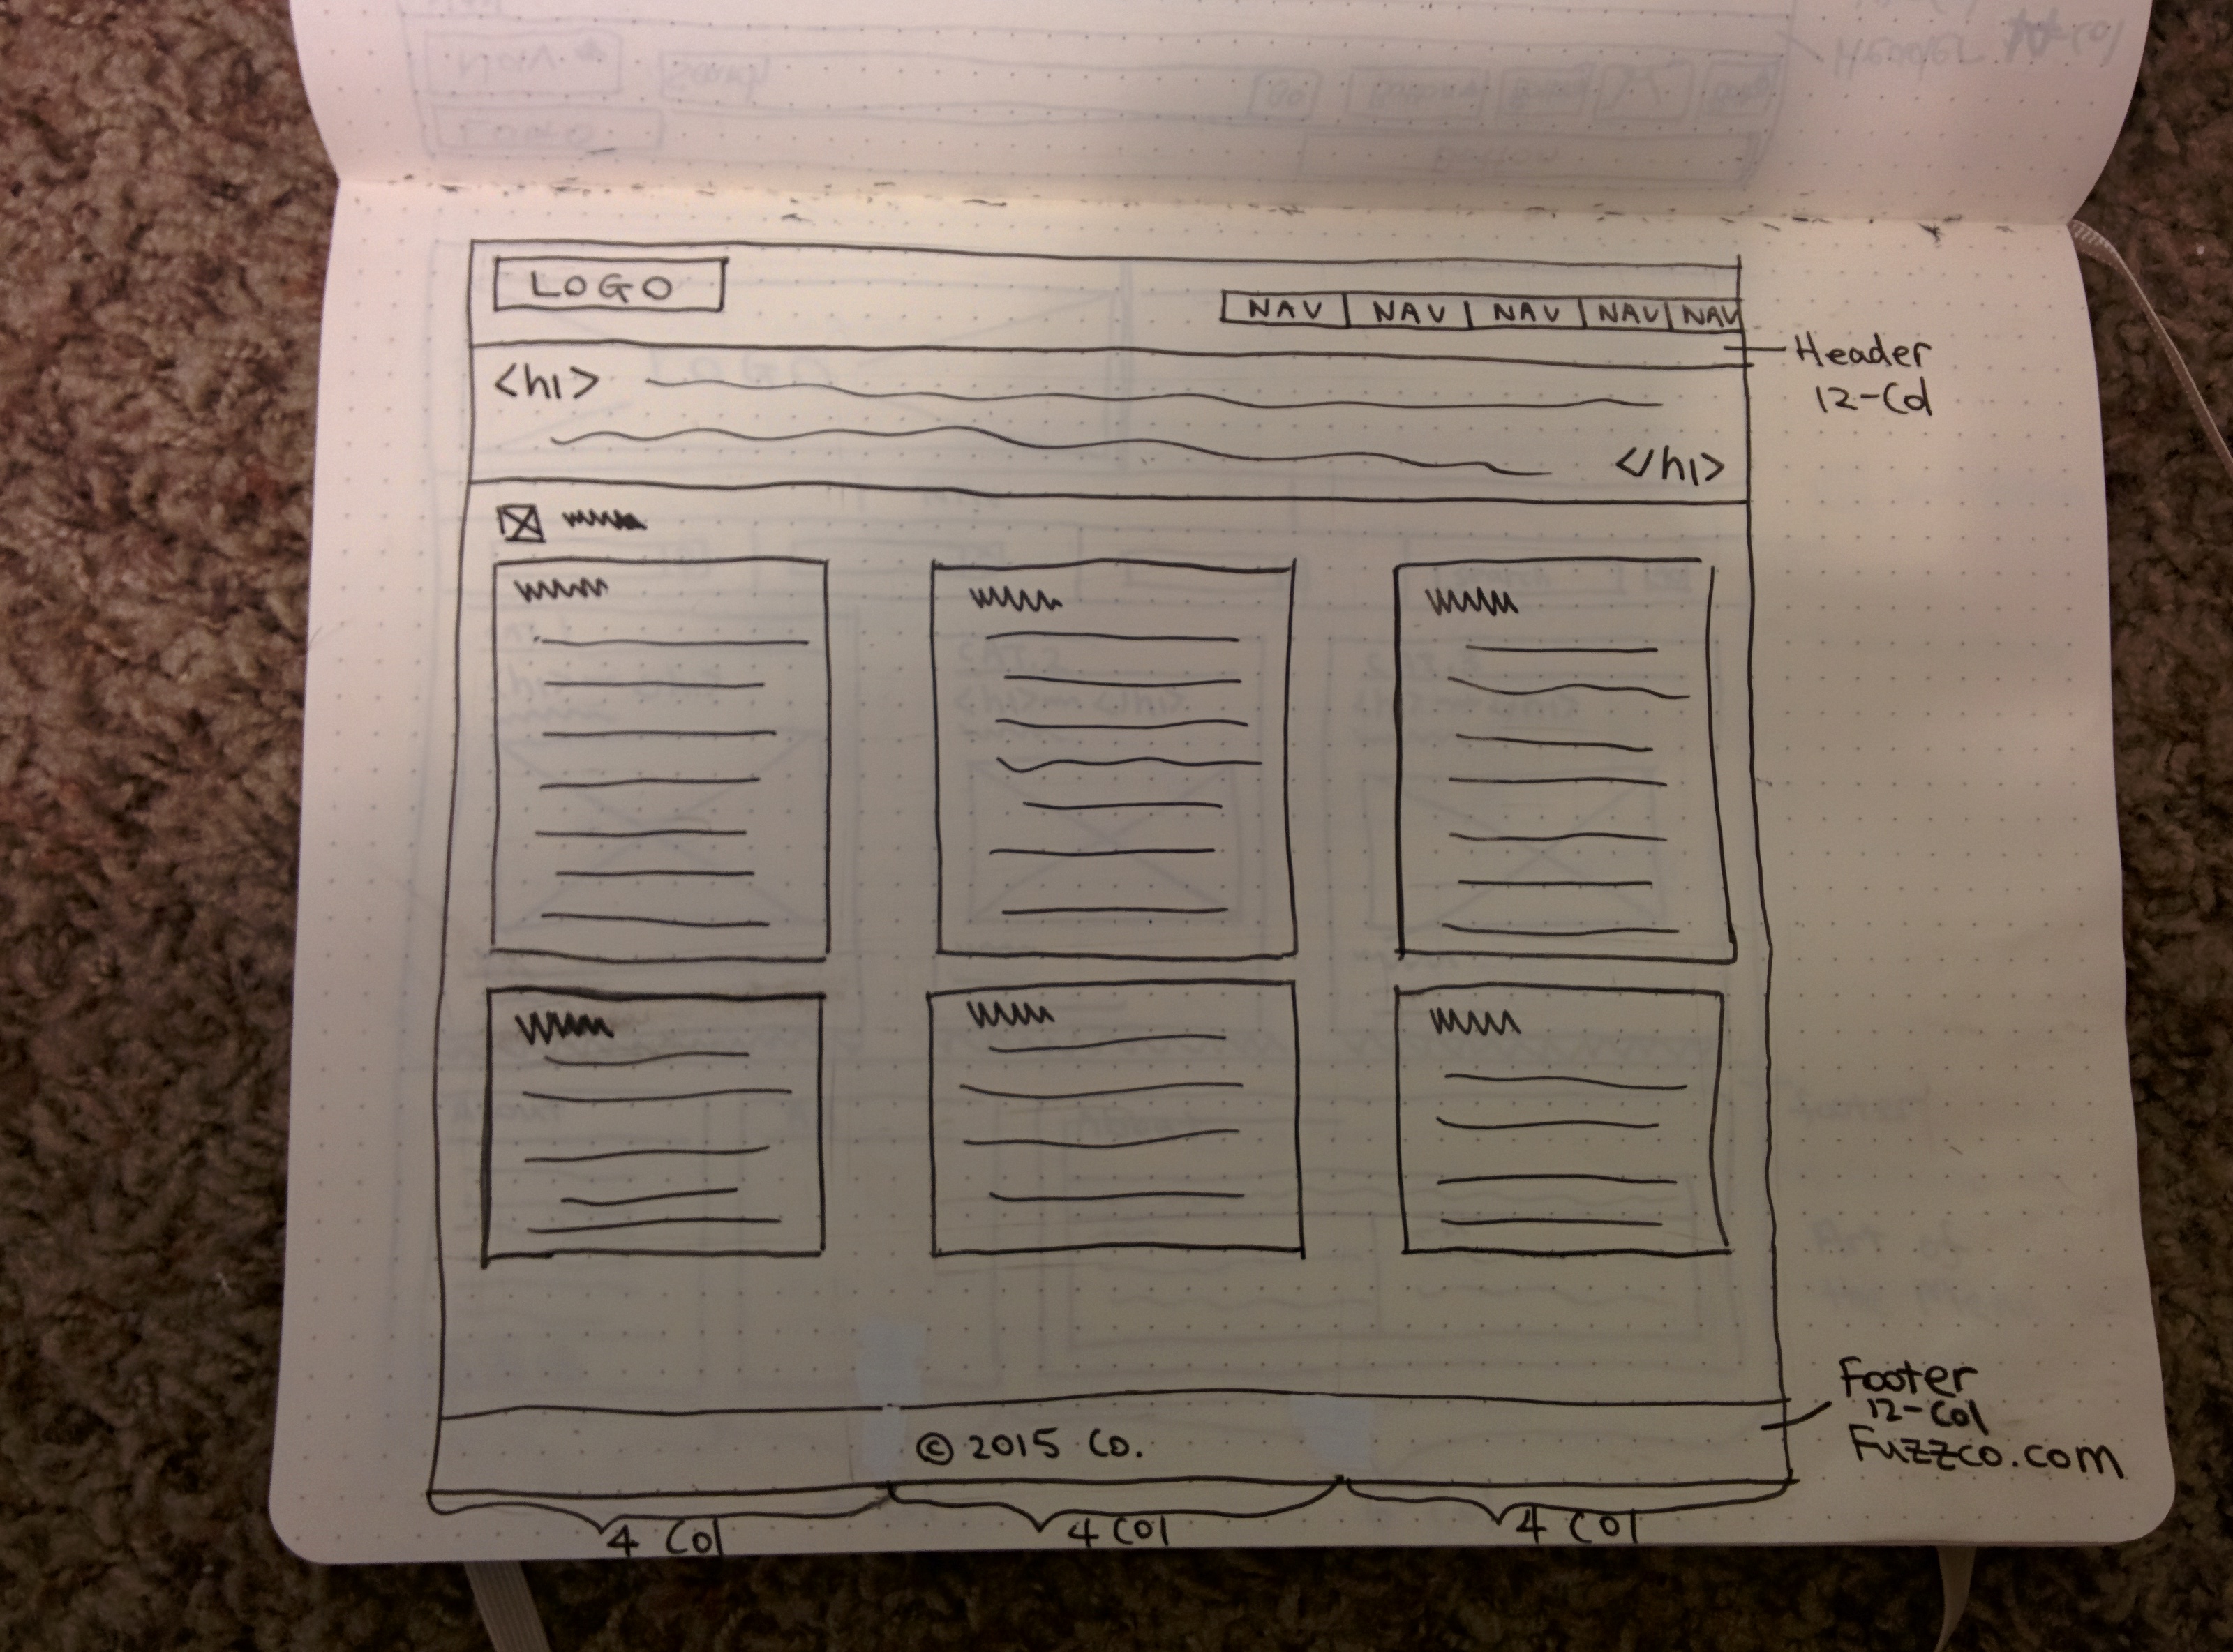 LOGO
NAV NAV NAV NAV NAV
Header
12-Col
<h1>
</h1>
© 2015 Co.
Footer
12-Col
Fuzzco.com
4 Col 4 Col 4 Col